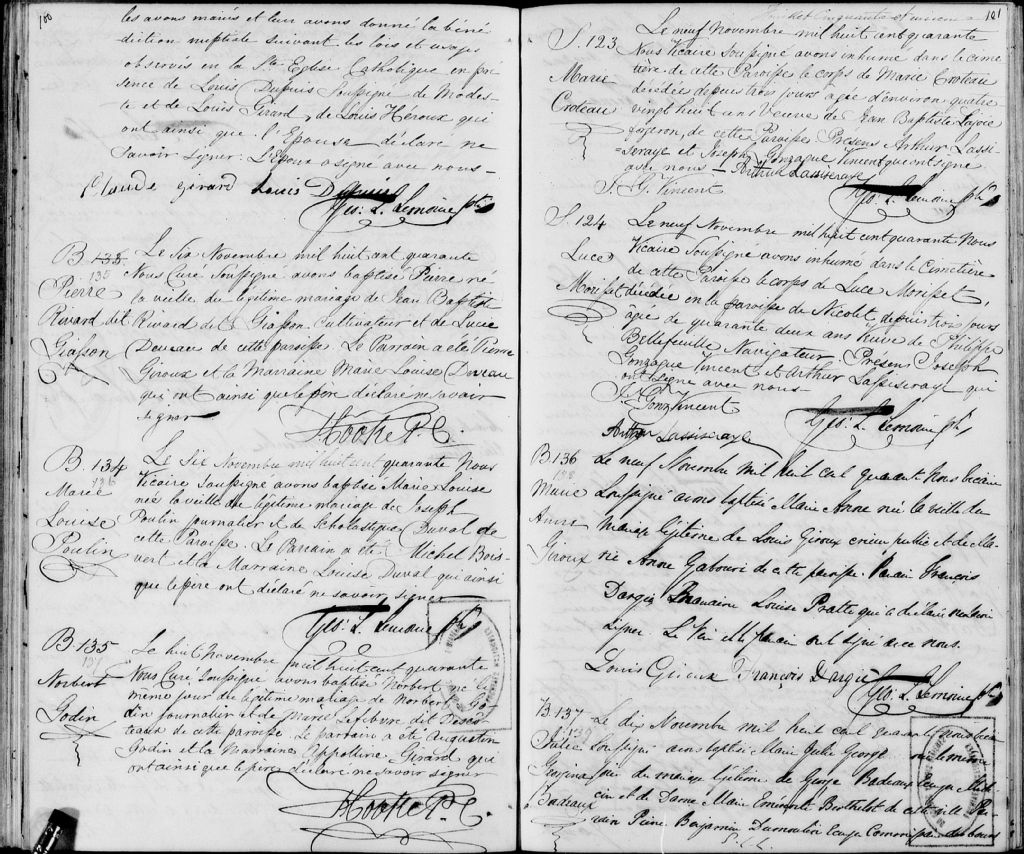 100
les avons mariés et leur avons donné la béné
diction nuptiale suivant les lois et usages
observés en la Ste Eglise Catholique en pré
sence de Louis Dupuis Soussigné de Modes-
te et de Louis Girard, de Louis Heroux qui
ont ainsi que l'Epouse déclaré ne
savoir signer. L'Epoux a signé avec nous-
Claude gerard Louis Dupuis
Geo: L. Lemoine ptre
B 133
130
Pierre
Rivard dit
Giasson
Le Six Novembre mil huit cent quarante
Nous Curé Soussigné avons baptisé Pierre né
la veille du légitime mariage de Jean Baptst
Rivard dit Giasson Cultivateur et de Lucie
Duveau de cette paroisse. Le Parrain a été Pierre
Giroux et la Marraine Marie Louise Duveau
qui ont ainsi que le père déclaré ne savoir
signer
SHooke P. C.
B. 134
136
Marie
Louise
Poulin
Le Six Novembre mil huit cent quarante Nous
Vicaire Soussigné avons baptisé Marie Louise
née la veille du légitime mariage de Joseph
Poulin journalier et de Scholastique Duval de
cette Paroisse. Le Parrain a été Michel Bois-
vert et la Marraine Louise Duval qui ainsi
que le père ont déclaré ne savoir signer
Geo: L. Lemoine ptre
B. 135
137
Norbert
Godin
Le huit Novembre mil huit cent quarante
Nous Curé Soussigné avons baptisé Norbert né le
même jour du légitime mariage de Norbert Go
din journalier et de Marie Lefebvre dit Descô
teaux de cette paroisse. Le parrain a été Augustin
Godin et la Marraine Appolline Girard qui
ont ainsi que le père déclaré ne savoir signer
SHooke P. C.
101
S. 123
Marie
Croteau
Le neuf Novembre mil huit cent quarante
Nous Vicaire Soussigné avons inhumé dans le cime
tière de cette Paroisse le corps de Marie Croteau
décédée depuis trois jours agée d'environ quatre
vingt huit ans Veuve de Jean Baptiste Lajoie
forgeron, de cette Paroisse Présens Arthur Lassi-
seraye et Joseph Gonzague Vincent qui ont signé
avec nous - Arthur Lassiseraye
J. G. Vincent
Geo. L. Lemoine ptre
S. 124
Luce
Morisset
Le neuf Novembre mil huit cent quarante Nous
Vicaire Soussigné avons inhumé dans le Cimetière
de cette Paroisse le corps de Luce Morisset,
décédée en la paroisse de Nicolet, depuis trois jours
agée de quarante deux ans Veuve de Philippe
Bellefeuille Navigateur. Présens Joseph
Gonzague Vincent, et Arthur Lassiseraye qui
ont signé avec nous-
J. Gonz Vincent
Geo. L. Lemoine ptre
Arthur Lassiseraye
B 136
138
Marie
Anne
Giroux
Le neuf Novembre mil huit cent quarante Nous Vicaire
Soussigné avons baptisé Marie Anne née la veille du
mariage légitime de Louis Giroux crieur public et de Ma-
rie Anne Gabouri de cette paroisse. Parain François
Dargis Maraine Louise Pratte qui a déclaré ne savoir
signer. Le Père et le parain ont signé avec nous.
Louis Giroux François Dargis
Geo. L. Lemoine ptre
B 137
139
Julie
Georgina
Badeaux
Le dix Novembre mil huit cent quarante Nous Vicaire
Soussigné avons baptisé Marie Julie Georgi
du mariage légitime de George Badeaux
et de Dame Marie
Pierre Benjamin Dumoulin